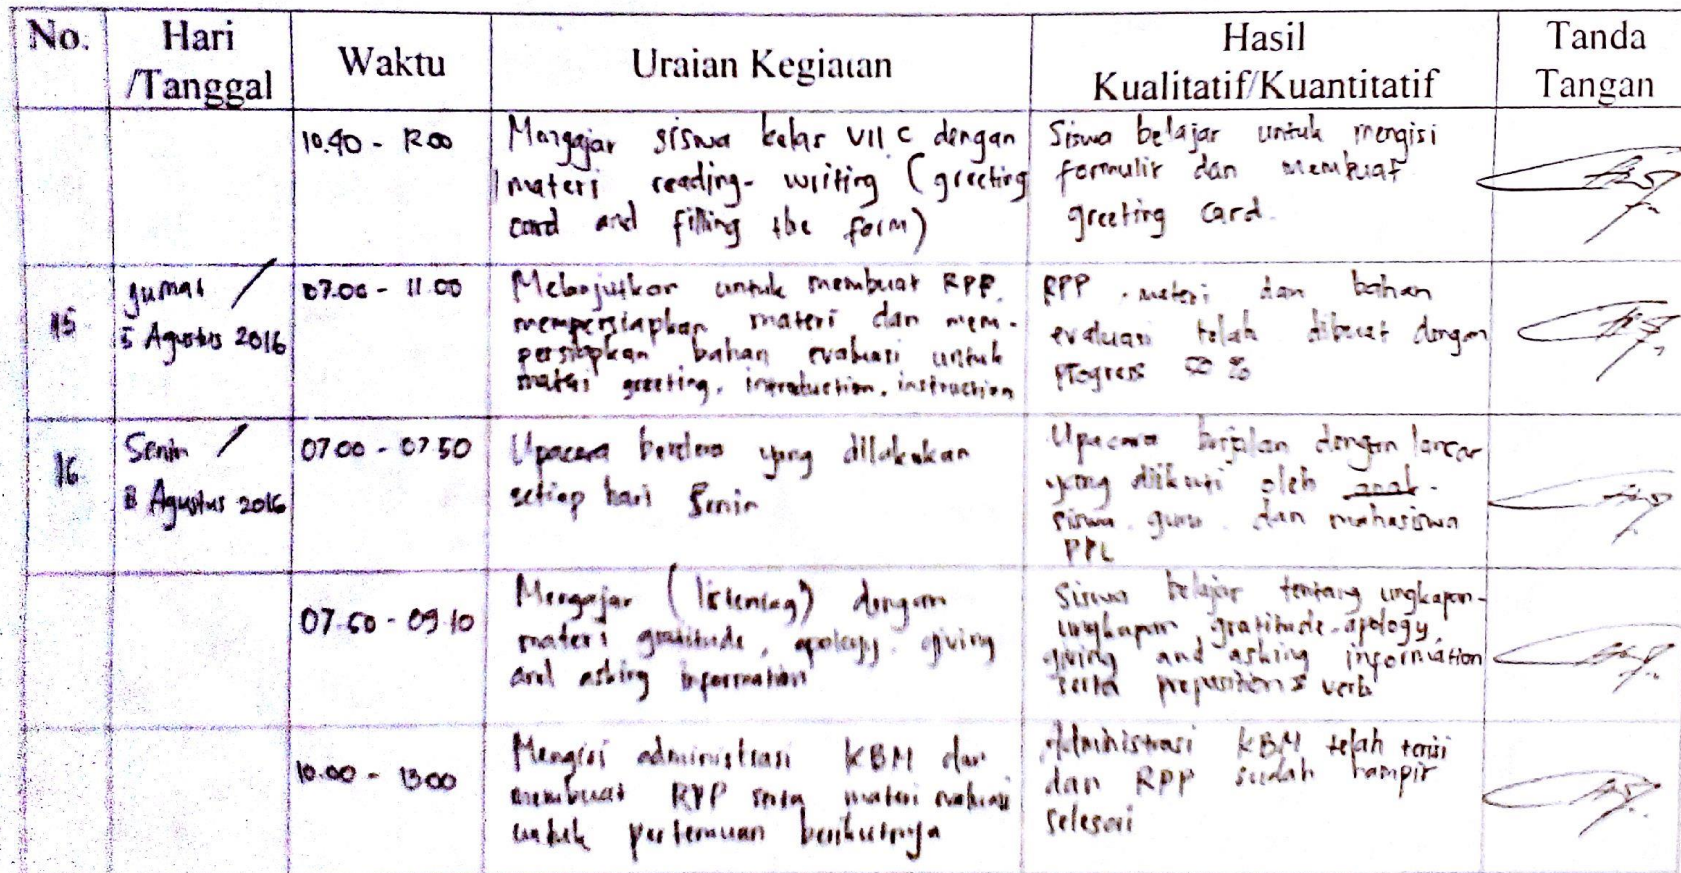 No. Hari /Tanggal Waktu Uraian Kegiatan Hasil Kualitatif/Kuantitatif Tanda Tangan
10.40 - 12.00
Mengajar siswa kelas VII C dengan
materi reading - writing (greeting
card and filling the form)
Siswa belajar untuk mengisi
formulir dan membuat
greeting card.
15
Jumat /
5 Agustus 2016
07.00 - 11.00
Melanjutkan untuk membuat RPP,
mempersiapkan materi dan mem-
persiapkan bahan evaluasi untuk
materi greeting, introduction, instruction
RPP, materi dan bahan
evaluasi telah dibuat dengan
progress %
16.
Senin /
8 Agustus 2016
07.00 - 07.50
Upacara bendera yang dilakukan
setiap hari Senin
Upacara berjalan dengan lancar
yang diikuti oleh
siswa, guru, dan mahasiswa
PPL
07.50 - 09.10
Mengajar (listening) dengan
materi gratitude, apology, giving
and asking information
Siswa belajar tentang ungkapan-
ungkapan gratitude, apology,
giving and asking information
serta preposition & verb
10.00 - 13.00
Mengisi administrasi KBM dan
membuat RPP serta materi evaluasi
untuk pertemuan berikutnya
Administrasi KBM telah terisi
dan RPP sudah hampir
selesai